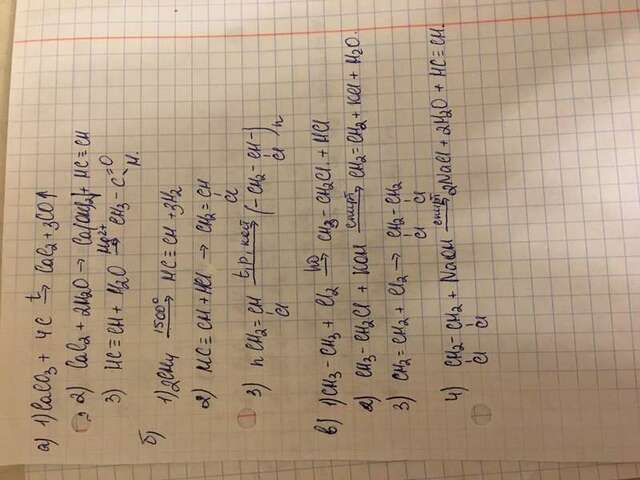 а) 1) CaCO3 + 4C →t CaC2 + 3CO↑
2) CaC2 + 2H2O → Ca(OH)2 + HC≡CH
3) HC≡CH + H2O →Hg2+ CH3-C=O
H.
б)
1) 2CH4 →1500° HC≡CH + 3H2
2) HC≡CH + HCl → CH2=CH
Cl
3) n CH2=CH →t, p, кат (-CH2-CH-)n
Cl Cl
в) 1) CH3-CH3 + Cl2 →hυ CH3-CH2Cl. + HCl
2) CH3-CH2Cl + KOH →спирт CH2=CH2 + KCl + H2O.
3) CH2=CH2 + Cl2 → CH2-CH2
Cl Cl
4) CH2-CH2 + NaOH →спирт 2NaCl + 2H2O + HC≡CH.
Cl Cl